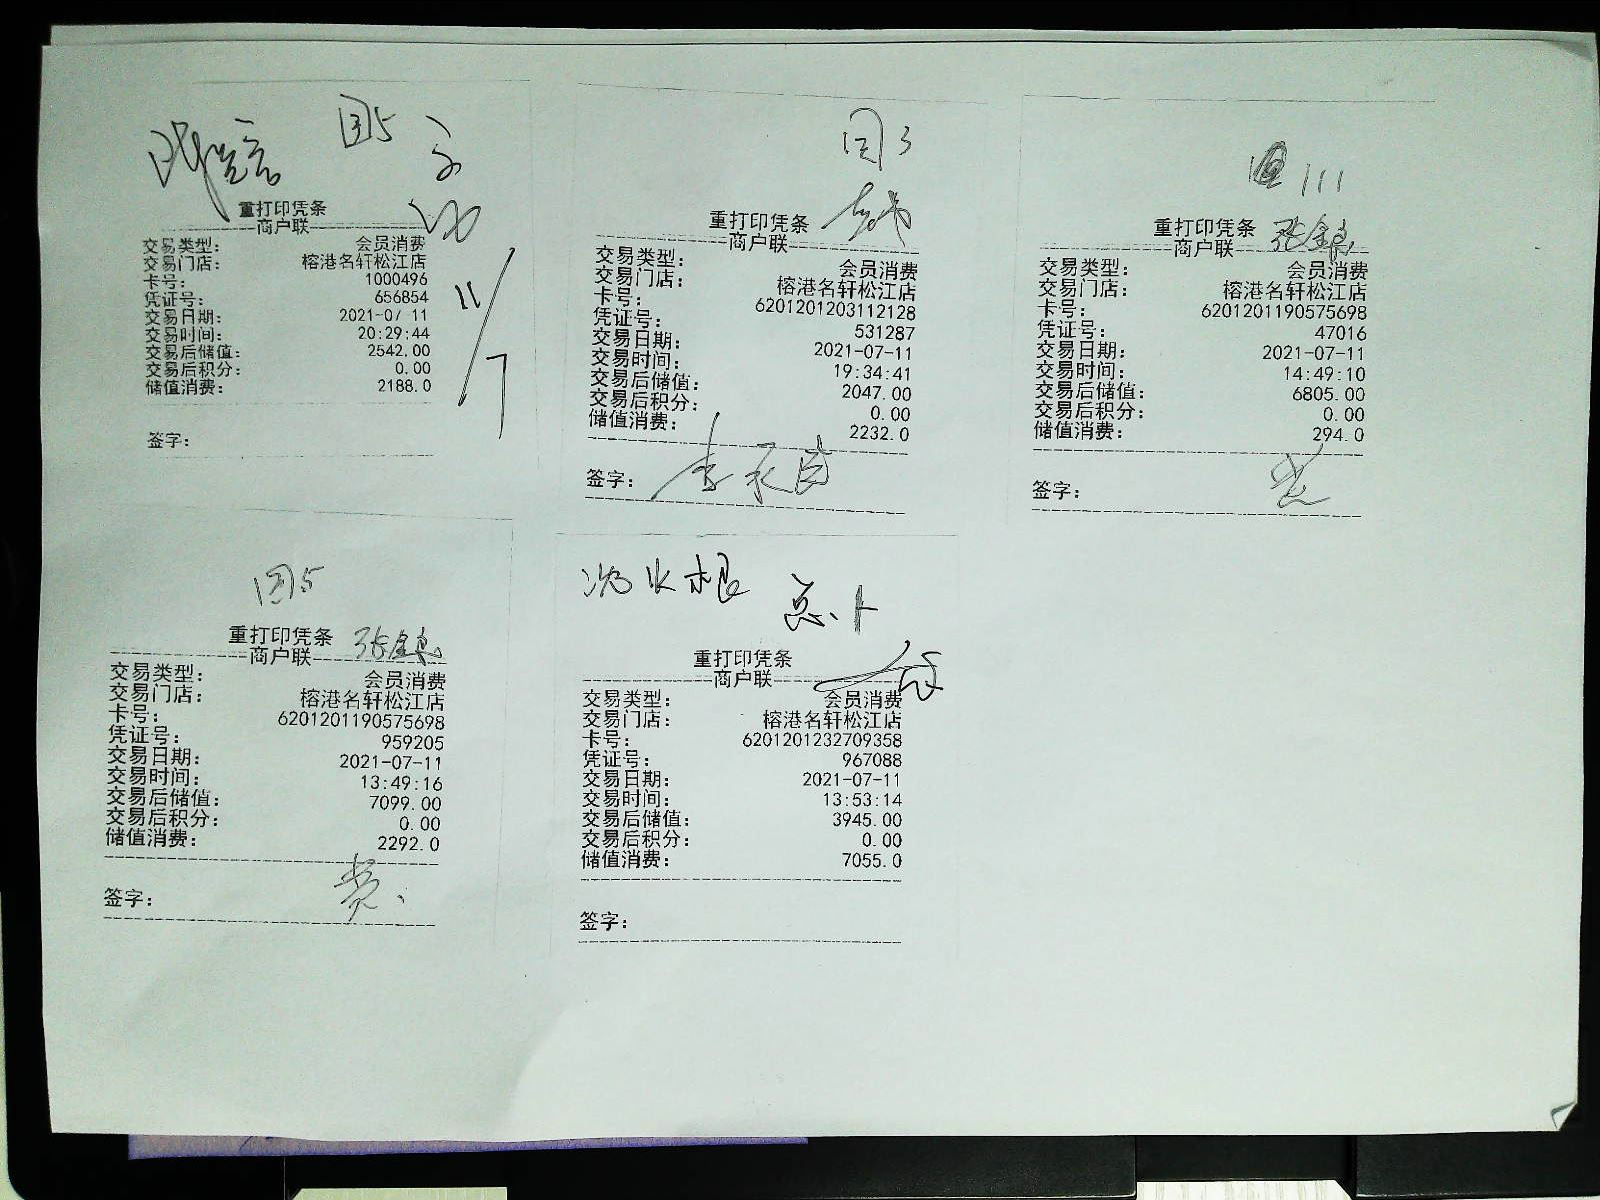 团5
重打印凭条
商户联
交易类型： 会员消费
交易门店： 榕港名轩松江店
卡号： 1000496
凭证号： 656854
交易日期： 2021-0/ 11
交易时间： 20:29:44
交易后储值： 2542.00
交易后积分： 0.00
储值消费： 2188.0
签字：
11/7
团3
重打印凭条
商户联
交易类型： 会员消费
交易门店： 榕港名轩松江店
卡号： 6201201203112128
凭证号： 531287
交易日期： 2021-07-11
交易时间： 19:34:41
交易后储值： 2047.00
交易后积分： 0.00
储值消费： 2232.0
签字：
111
重打印凭条
商户联
交易类型： 会员消费
交易门店： 榕港名轩松江店
卡号： 6201201190575698
凭证号： 47016
交易日期： 2021-07-11
交易时间： 14:49:10
交易后储值： 6805.00
交易后积分： 0.00
储值消费： 294.0
签字：
团5
重打印凭条
商户联
交易类型： 会员消费
交易门店： 榕港名轩松江店
卡号： 6201201190575698
凭证号： 959205
交易日期： 2021-07-11
交易时间： 13:49:16
交易后储值： 7099.00
交易后积分： 0.00
储值消费： 2292.0
签字：
沈火根
重打印凭条
商户联
交易类型： 会员消费
交易门店： 榕港名轩松江店
卡号： 6201201232709358
凭证号： 967088
交易日期： 2021-07-11
交易时间： 13:53:14
交易后储值： 3945.00
交易后积分： 0.00
储值消费： 7055.0
签字：